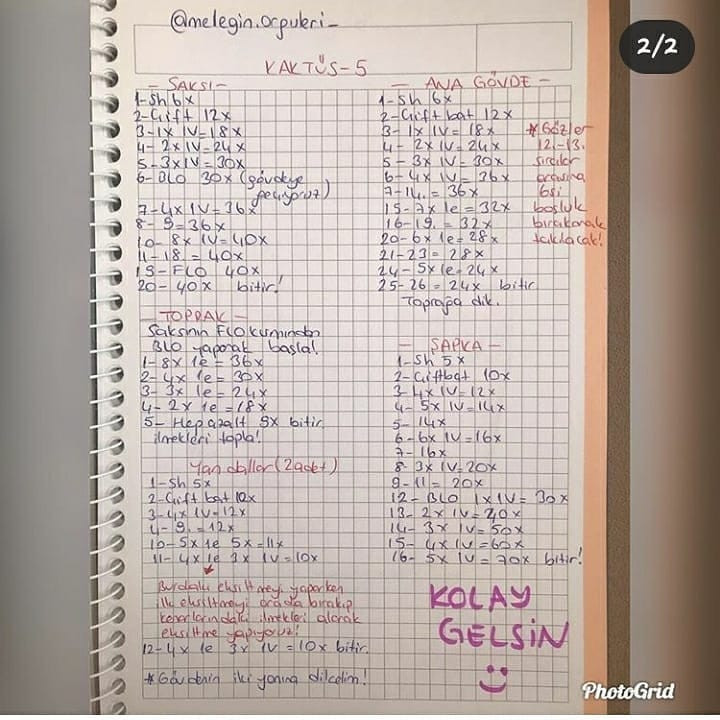 @melegin.orguleri_
2/2
KAKTÜS-5
- SAKSI -
1-Sh 6x
2-Çift 12x
3-1x IV=18x
4-2x IV=24x
5-3x IV=30x
6-BLO 30x (gövdeye
geçiyoruz)
7-4x IV=36x
8-9=36x
10-8x IV=40x
11-18=40x
19-FLO 40x
20-40x bitir!
- TOPRAK -
Saksının FLO kısmından
BLO yaparak başla!
1-8x 1e=36x
2-4x 1e=30x
3-3x 1e=24x
4-2x 1e=18x
5-Hep azalt 9x bitir.
ilmekleri topla!
Yan dallar (2 adet)
1-Sh 5x
2-Çift bat 10x
3-4x IV=12x
4-9.=12x
10-5x 1e 5x=11x
11-4x 1e 3x IV=10x
Burdaki eksiltmeyi yaparken
ilk eksiltmeyi orada bırakıp
kenarlarındaki ilmekleri alarak
eksiltme yapıyoruz!
12-4x 1e 3x IV=10x bitir.
*Gövdenin iki yanına dikelim!
- ANA GÖVDE -
1-Sh 6x
2-Çift bat 12x
3-1x IV=18x
4-2x IV=24x
5-3x IV=30x
6-4x IV=36x
7-14.=36x
15-7x 1e=32x
16-19.=32x
20-6x 1e=28x
21-23=28x
24-5x 1e=24x
25-26=24x bitir
Toprağa dik.
*Gözler
12.-13.
sıralar
arasına
6si
boşluk
bırakarak
takılacak!
- ŞAPKA -
1-Sh 5x
2-Çiftbat 10x
3-4x IV=12x
4-5x IV=14x
5-14x
6-6x IV=16x
7-16x
8-3x IV=20x
9-11=20x
12-BLO 1x IV=30x
13-2x IV=40x
14-3x IV=50x
15-4x IV=60x
16-5x IV=70x bitir!
KOLAY
GELSİN
PhotoGrid